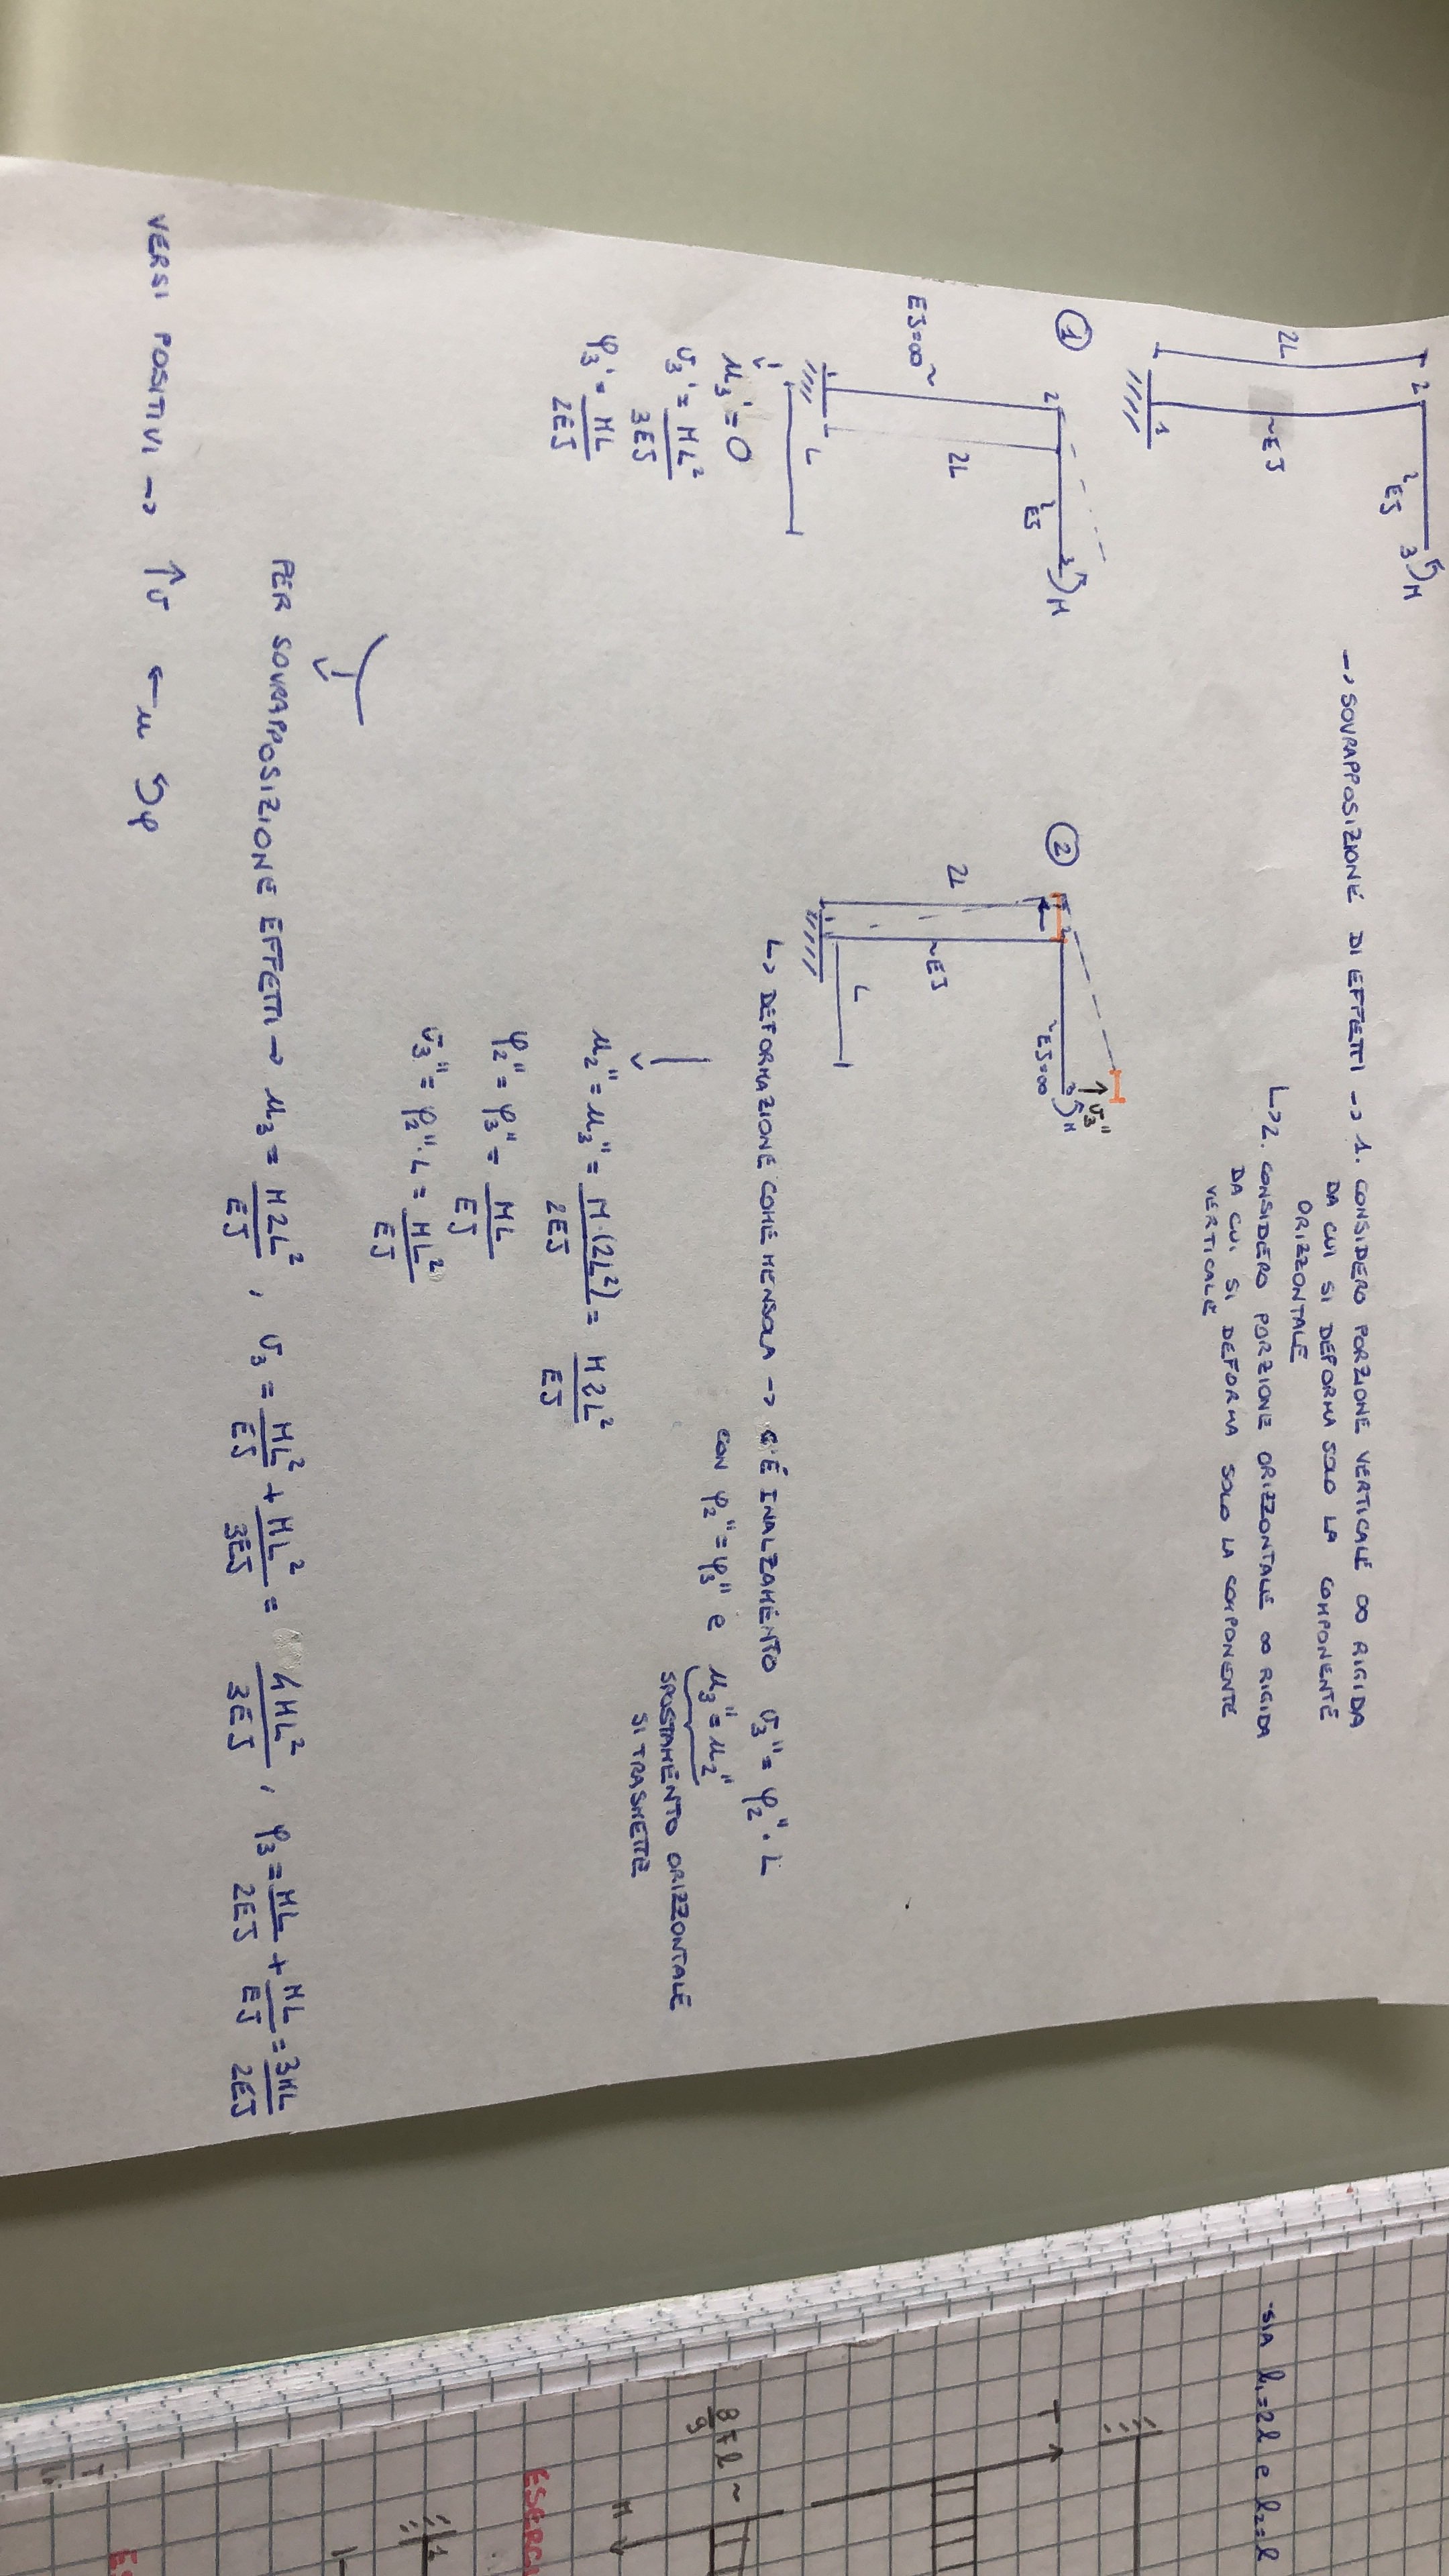 2
²EJ
3
M
2L
~EJ
1
→ SOVRAPPOSIZIONE DI EFFETTI → 1. CONSIDERO PORZIONE VERTICALE ∞ RIGIDA
DA CUI SI DEFORMA SOLO LA COMPONENTE
ORIZZONTALE
↳ 2. CONSIDERO PORZIONE ORIZZONTALE ∞ RIGIDA
DA CUI SI DEFORMA SOLO LA COMPONENTE
VERTICALE
①
2
3
M
²EJ
EJ=∞~
2L
L
u₃' = 0
v₃' = ML²/3EJ
φ₃' = ML/2EJ
②
2
3
M
v₃''
~EJ=∞
2L
~EJ
L
↳ DEFORMAZIONE COME MENSOLA → C'È INALZAMENTO v₃'' = φ₂'' · L
CON φ₂'' = φ₃'' e u₃'' = u₂''
SPOSTAMENTO ORIZZONTALE
SI TRASMETTE
u₂'' = u₃'' = M·(2L²)/2EJ = M2L²/EJ
φ₂'' = φ₃'' = ML/EJ
v₃'' = φ₂''·L = ML²/EJ
PER SOVRAPPOSIZIONE EFFETTI → u₃ = M2L²/EJ , v₃ = ML²/EJ + ML²/3EJ = 4ML²/3EJ , φ₃ = ML/2EJ + ML/EJ = 3ML/2EJ
VERSI POSITIVI → ↑v ←u ↺φ
·SIA l₁=2l e l₂=l
T
8/9 Fl ~
M
ESERCI